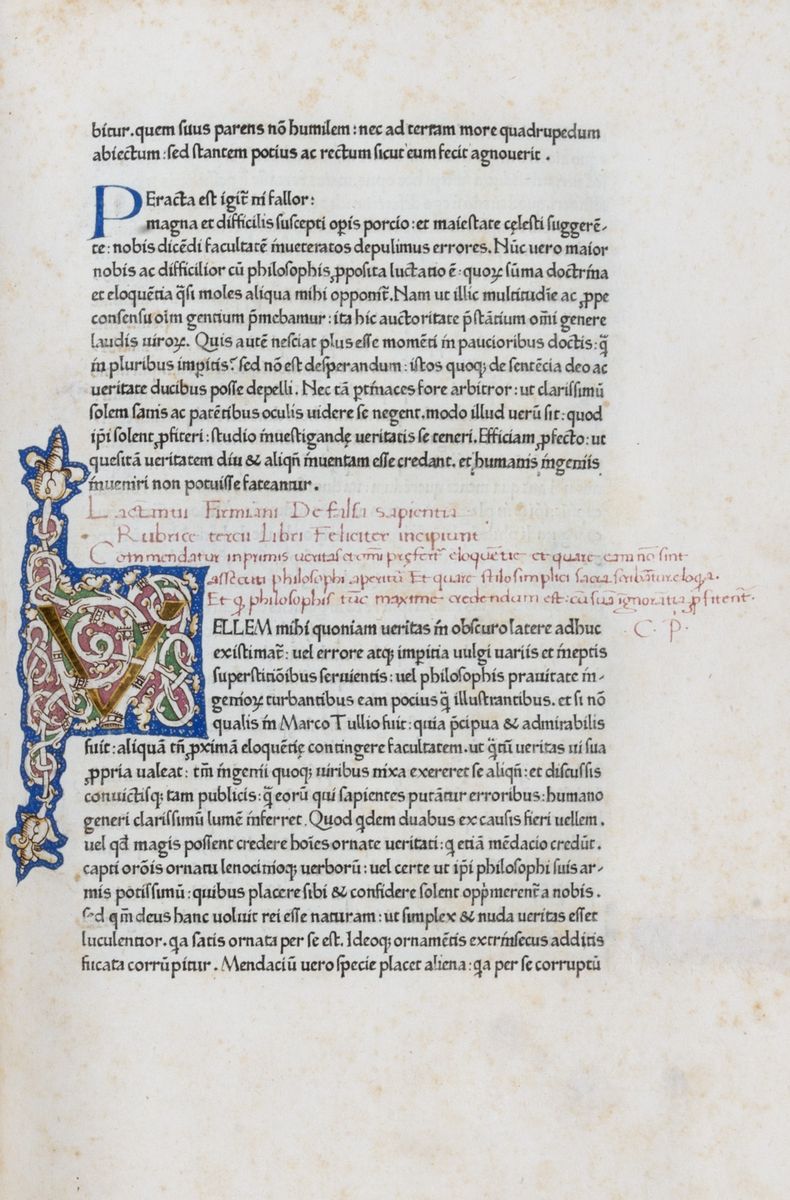 bitur.quem suus parens nō humilem : nec ad terram more quadrupedum
abiectum : sed stantem potius ac rectum sicut eum fecit agnouerit .
PEracta est igit᷑ ni fallor :
magna et difficilis suscepti op̄is porcio : et maiestate cęlesti suggerē-
te : nobis dicēdi facultatē inueteratos depulimus errores. Nūc uero maior
nobis ac difficilior cū philosophis ꝓposita luctatio ē : quoꝝ sūma doctrina
et eloquētia q̄si moles aliqua mihi opponit᷑. Nam ut illic multitudīe ac ꝓpe
consensu oīm gentium p̄mebamur : ita hic auctoritate p̄stātium omī genere
laudis uiroꝝ. Quis autē nesciat plus esse momēti in paucioribus doctis : q̄
in pluribus imꝑitis? sed nō est desperandum : istos quoqꝫ de sentēcia deo ac
ueritate ducibus posse depelli. Nec tā ꝑtinaces fore arbitror : ut clarissimū
solem sanis ac patētibus oculis uidere se negent. modo illud uerū sit : quod
ip̄i solent ꝓfiteri : studio inuestigandę ueritatis se teneri. Efficiam ꝓfecto : ut
quesitā ueritatem diu & aliqn̄ inuentam esse credant. et humanis ingeniis
inueniri non potuisse fateantur .
Lactantii Firmiani De falsa sapientia
Rubrice tercii Libri Feliciter incipiunt
Commendatur inprimis ueritas et omī pręfert᷑ eloquētie et quare eam nō sint
assecuti philosophi aperitū Et quare stilo simplici sacra scribāt᷑ur eloq̄a .
Et q̄ philosophis tūc maxime credendum est : cū suā ignorātiā ꝓfitent᷑ .
C . P .
VELLEM mihi quoniam ueritas in obscuro latere adhuc
existimat᷑ : uel errore atqꝫ imꝑitia uulgi uariis et ineptis
superstitiōibus seruientis : uel philosophis prauitate in-
genioꝝ turbantibus eam pocius q̄ illustrantibus. et si nō
qualis in Marco Tullio fuit : quia p̄cipua & admirabilis
fuit : aliquā tn̄ ꝓximā eloquētię contingere facultatem. ut q̄tū ueritas ui sua
ꝓpria ualeat : tm̄ ingenii quoqꝫ uiribus nixa exereret se aliqn̄ : et discussis
conuictisqꝫ tam publicis : q̄ eorū qui sapientes putātur erroribus : humano
generi clarissimū lumē inferret. Quod q̄dem duabus ex causis fieri uellem.
uel qd̄ magis possent credere hoīes ornate ueritati : q̄ etiā mēdacio credūt.
capti orōis ornatu lenocinioqꝫ uerborū : uel certe ut ip̄i philosophi suis ar-
mis potissimū : quibus placere sibi & confidere solent opp̄merent᷑ a nobis .
sed qm̄ deus hanc uoluit rei esse naturam : ut simplex & nuda ueritas esset
luculentior. q̄a satis ornata per se est. Ideoqꝫ ornamētis extrinsecus additis
fucata corrūpitur. Mendaciū uero specie placet aliena : q̄a per se corruptū